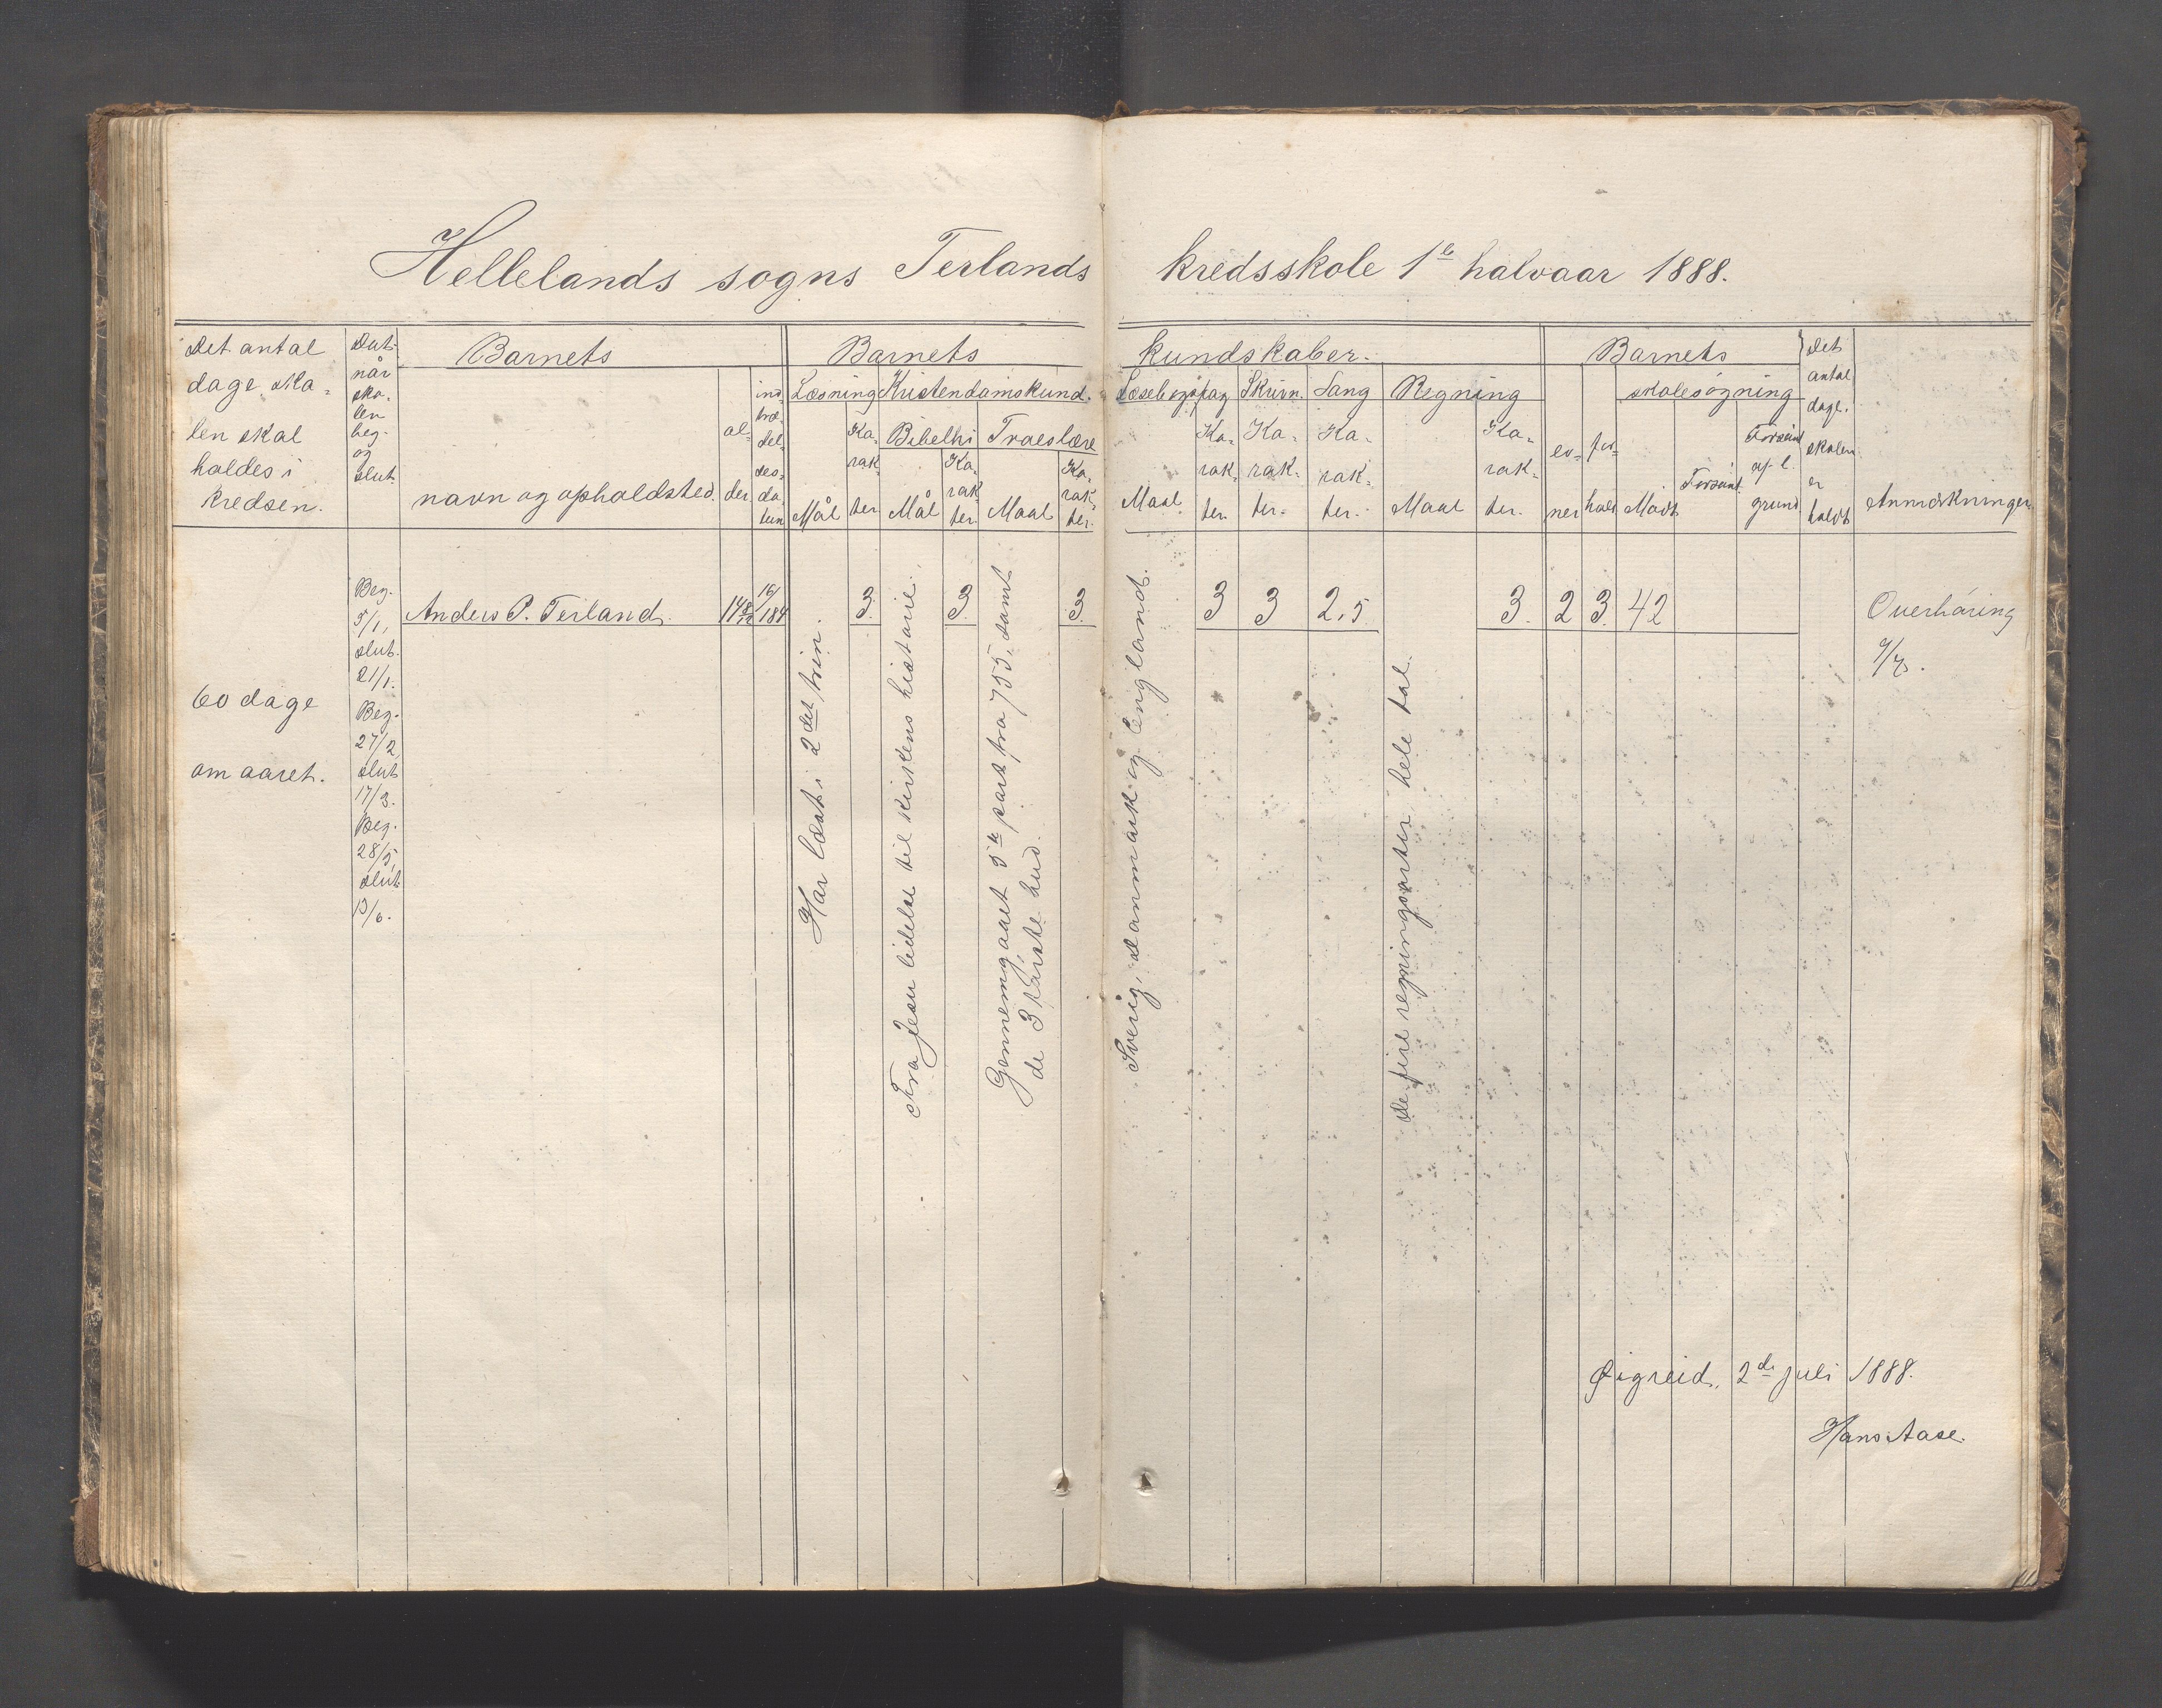 Hellelands sogns Terlands kredsskole 1te halvaar 1888.
Det antal dage skolen skal holdes i kredsen.
Dat. når skolen beg. og slut.
Barnets
navn og opholdsted.
alder
indtrædelsesdatum
Barnets kundskaber.
Læsning
Mål
Karakter
Kristendomskund.
Bibelhi
Mål
Karakter.
Troeslære
Maal
Karakter.
Læsebogsfag
Maal.
Karakter.
Skrivn.
Karakter.
Sang
Karakter.
Regning
Maal
Karakter.
evner
forhold
Barnets skolesøgning
Mødt
Forsømt
Forsømt af l. grund
Det antal dage skolen er holdt
Anmærkninger
60 dage
om aaret.
Beg.
5/1,
slut.
21/1.
Beg.
27/2
slut
17/3.
Beg.
28/5,
slut
13/6.
Anders P. Terland. 14 3. 3. 3. 3 3 2,5 3. 2 3. 42 Overhøring
Har læst i 2det trin.
Fra Jesu lidelse til kirkens historie.
Gennemgaaet 5te part fra 755, samt
de 3 første bud.
Sverig, Danmark og England.
De fire regningsarter hele tal.
Øigreid, 2de juli 1888.
Hans Aase.